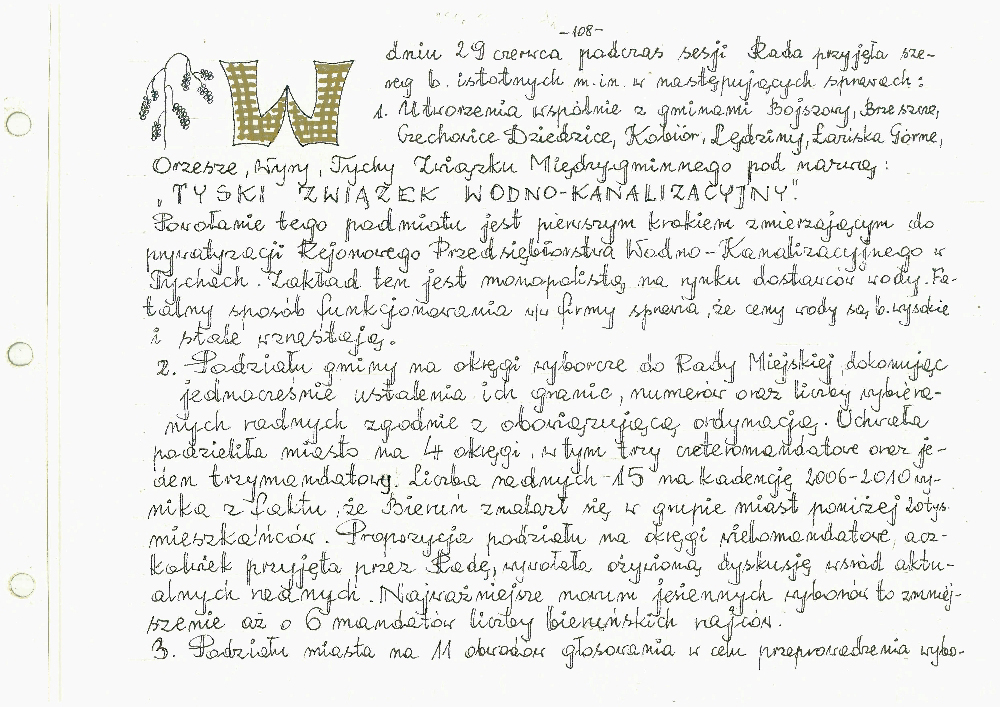 -108-
W dniu 29 czerwca podczas sesji Rada przyjęła sze-
reg b. istotnych m.in. w następujących sprawach:
1. Utworzenia wspólnie z gminami Bojszowy, Brzeszcze,
Czechowice Dziedzice, Kobiór, Lędziny, Łaziska Górne,
Orzesze, Wyry, Tychy Związku Międzygminnego pod nazwą:
„TYSKI ZWIĄZEK WODNO-KANALIZACYJNY".
Powołanie tego podmiotu jest pierwszym krokiem zmierzającym do
prywatyzacji Rejonowego Przedsiębiorstwa Wodno-Kanalizacyjnego w
Tychach. Zakład ten jest monopolistą na rynku dostawców wody. Fa-
talny sposób funkcjonowania w/w firmy sprawia, że ceny wody są b. wysokie
i stale wzrastają.
2. Podziału gminy na okręgi wyborcze do Rady Miejskiej dokonując
jednocześnie ustalenia ich granic, numerów oraz liczby wybiera-
nych radnych zgodnie z obowiązującą ordynacją. Uchwała
podzieliła miasto na 4 okręgi, w tym trzy czteromandatowe oraz je-
den trzymandatowy. Liczba radnych -15 na kadencję 2006-2010 wy-
nika z faktu, że Bieruń znalazł się w grupie miast poniżej 20tys.
mieszkańców. Propozycja podziału na okręgi wielomandatowe, acz-
kolwiek przyjęta przez Radę, wywołała ożywioną dyskusję wśród aktu-
alnych radnych. Najważniejsze novum jesiennych wyborów to zmniej-
szenie aż o 6 mandatów liczby bieruńskich rajców.
3. Podziału miasta na 11 obwodów głosowania w celu przeprowadzenia wybo-